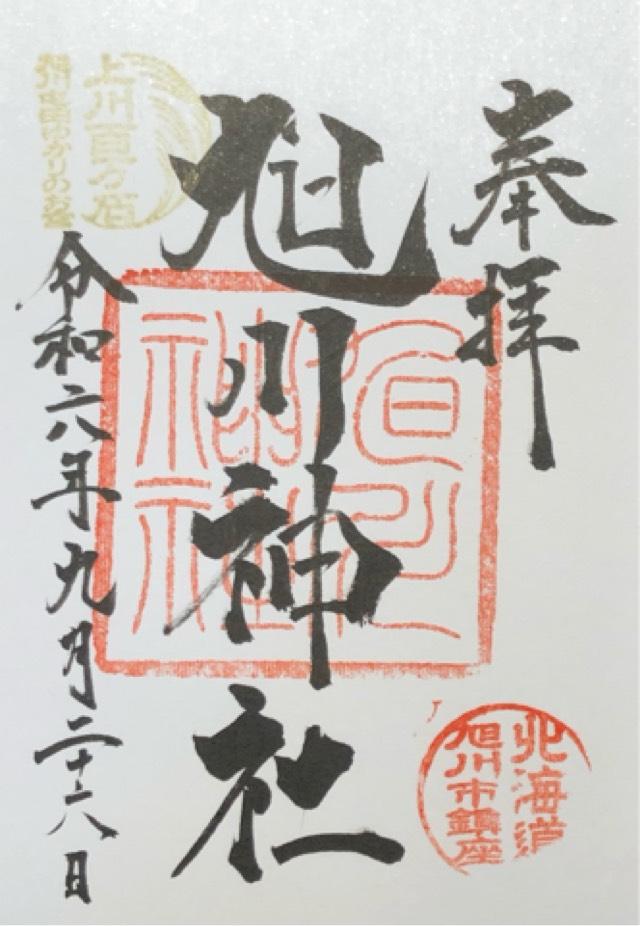 奉拝
旭川神社
令和六年九月二十六日
上川百万石
ゆかりのお宮
旭川
神社
北海道
旭川市鎮座